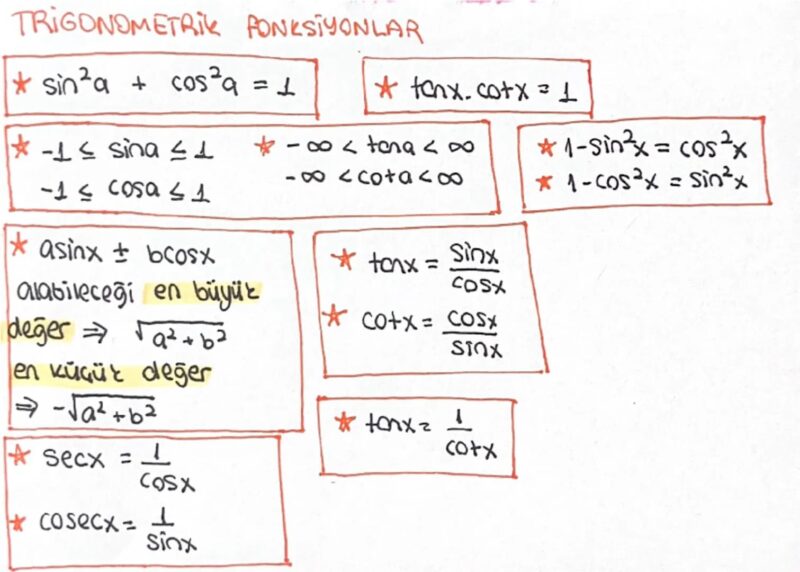 TRİGONOMETRİK FONKSİYONLAR
★ sin²a + cos²a = 1
★ tanx . cotx = 1
★ -1 ≤ sina ≤ 1
-1 ≤ cosa ≤ 1
★ -∞ < tana < ∞
-∞ < cota < ∞
★ 1-sin²x = cos²x
★ 1-cos²x = sin²x
★ asinx ± bcosx
alabileceği en büyük
değer ⇒ √(a²+b²)
en küçük değer
⇒ -√(a²+b²)
★ tanx = sinx/cosx
★ cotx = cosx/sinx
★ tanx = 1/cotx
★ secx = 1/cosx
★ cosecx = 1/sinx